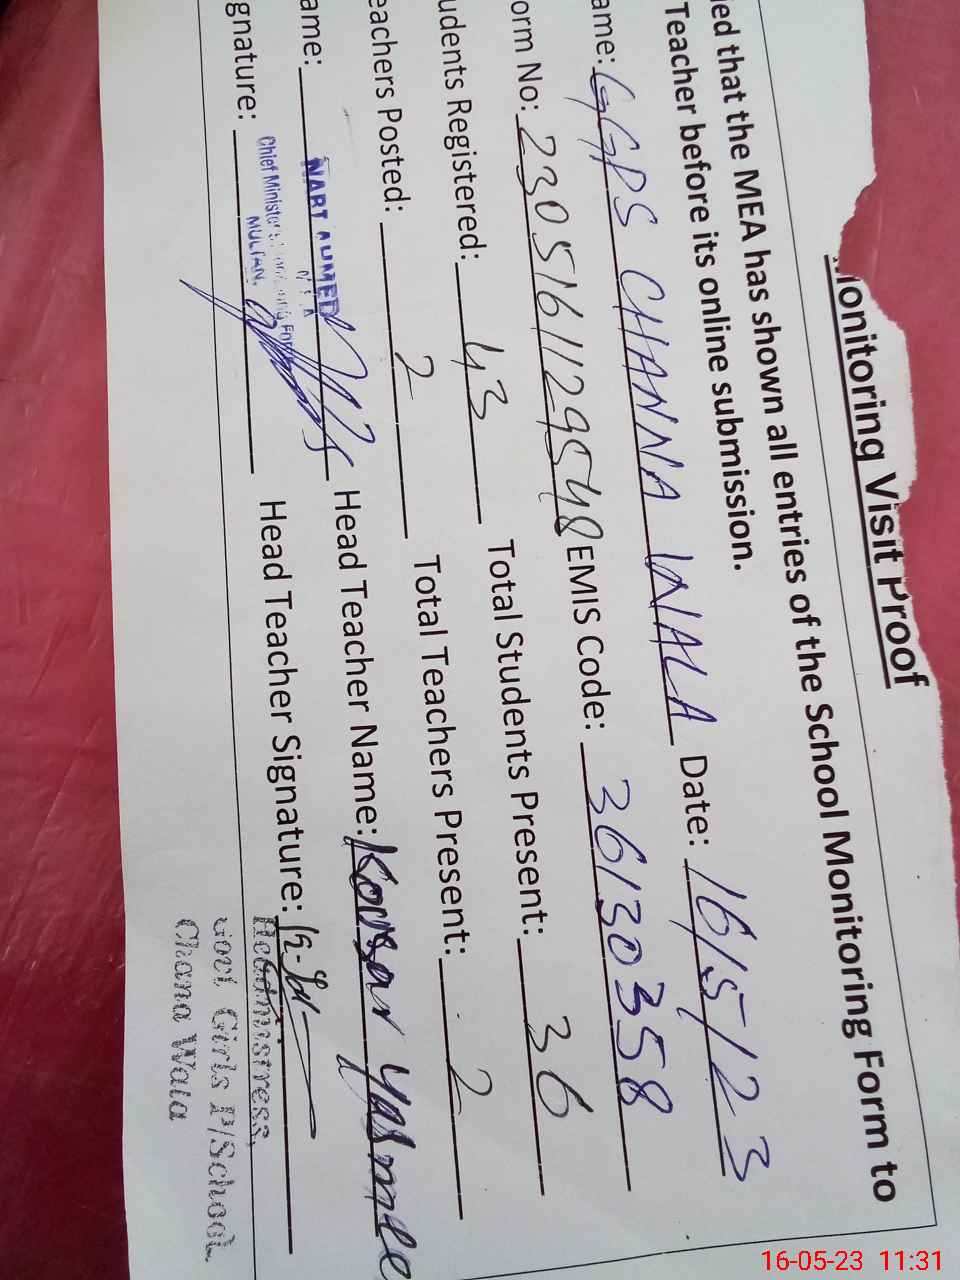 Monitoring Visit Proof
ied that the MEA has shown all entries of the School Monitoring Form to
Teacher before its online submission.
ame: GGPS CHANNA WALA Date: 16/5/23
orm No: 2305161129548 EMIS Code: 36130358
udents Registered: 43 Total Students Present: 36
eachers Posted: 2 Total Teachers Present: 2
ame: AHMED Head Teacher Name: Kousar Yasmee
Chief Minister's Monitoring Force
MULTAN.
gnature: Head Teacher Signature:
Headmistress,
Govt. Girls P/School
Chana Wala
16-05-23 11:31